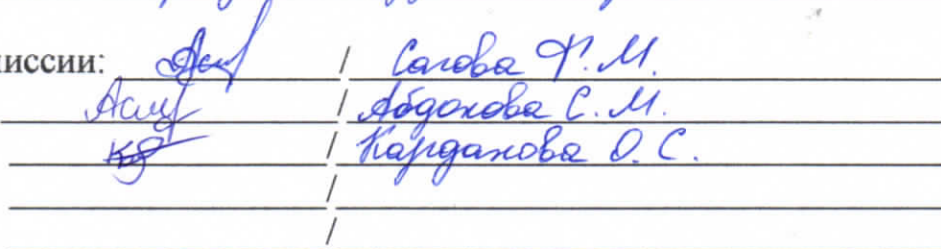 иссии: / Сагова Ф. М.
/ Абдокова С. М.
/ Карданова О. С.
/
/